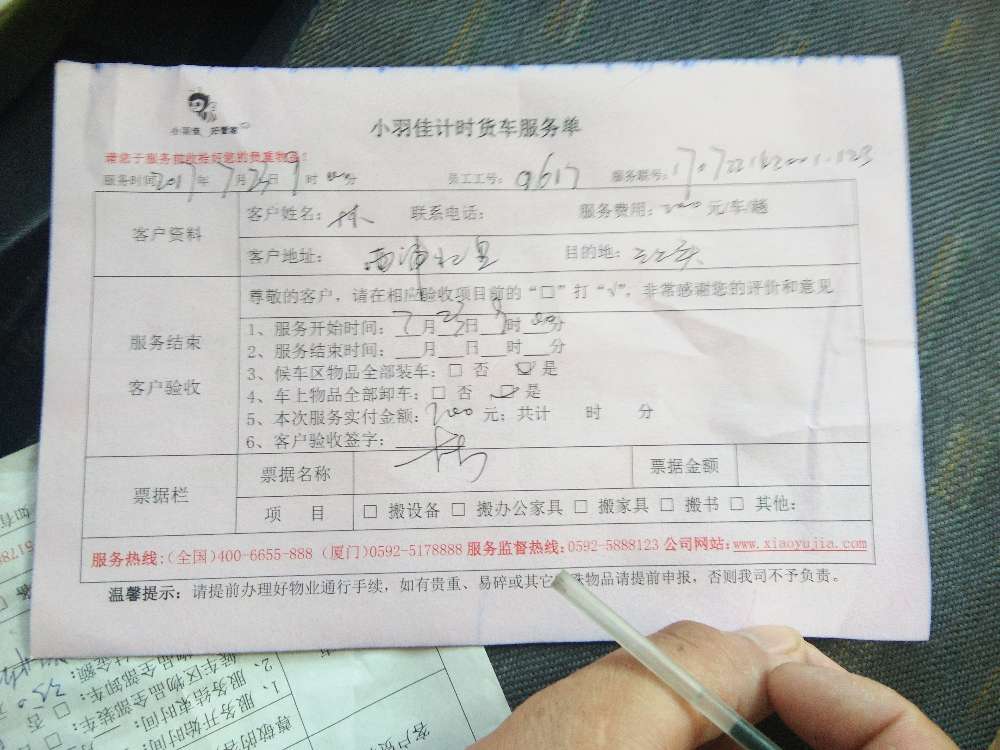 小羽佳 好管家
小羽佳计时货车服务单
请您于服务前收拾好您的贵重物品!
服务时间2017年7月23日9时00分 员工工号: 9617 服务联号:
客户资料 客户姓名:林 联系电话: 服务费用: 元/车/趟
客户地址: 西浦北里 目的地:
尊敬的客户,请在相应验收项目前的“□”打“√”,非常感谢您的评价和意见
服务结束
客户验收
1、服务开始时间:7月23日9时00分
2、服务结束时间:___月___日___时___分
3、候车区物品全部装车:□ 否 ☑ 是
4、车上物品全部卸车:□ 否 ☑ 是
5、本次服务实付金额: 元;共计 时 分
6、客户验收签字:
票据栏 票据名称 票据金额
项 目 □ 搬设备 □ 搬办公家具 □ 搬家具 □ 搬书 □ 其他:
服务热线:(全国)400-6655-888 (厦门)0592-5178888 服务监督热线:0592-5888123 公司网站:www.xiaoyujia.com
温馨提示:请提前办理好物业通行手续,如有贵重、易碎或其它 殊物品请提前申报,否则我司不予负责。